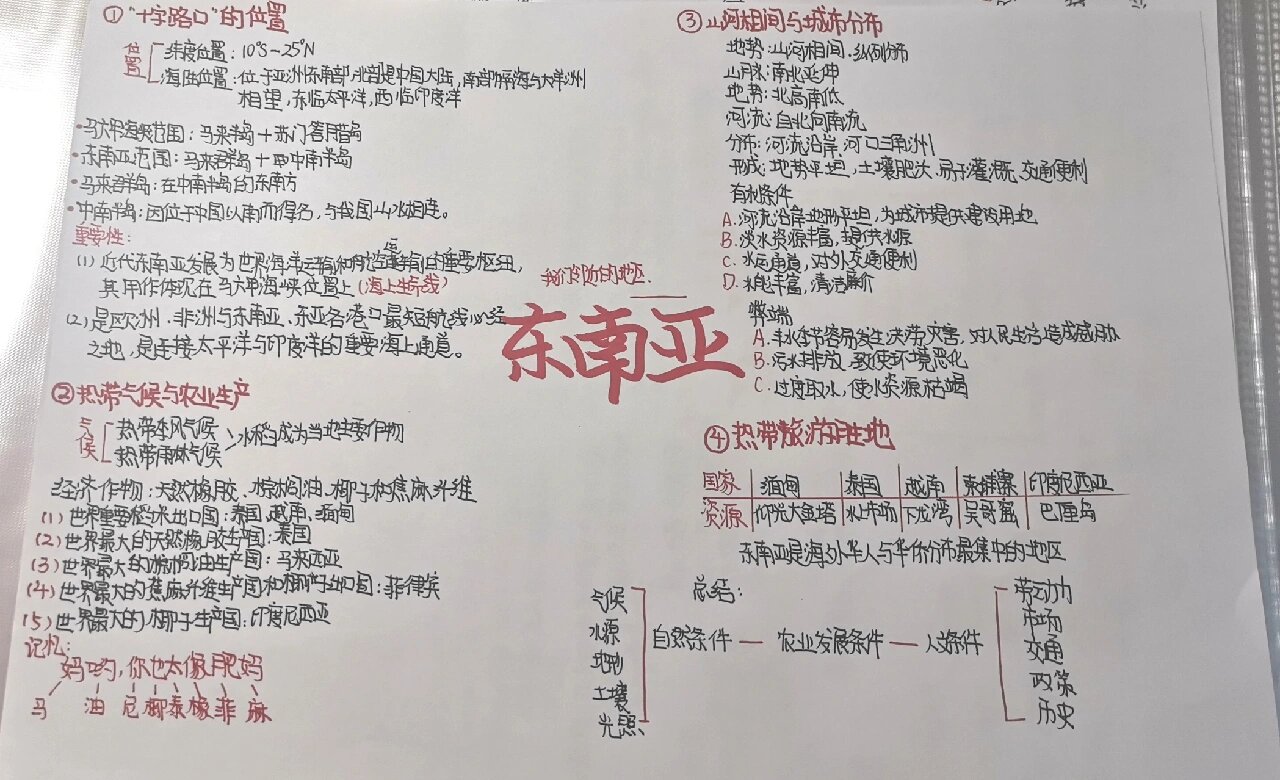 ①"十字路口"的位置
位置
纬度位置：10°S-25°N
海陆位置：位于亚洲东南部,北部是中国大陆,南部隔海与大洋洲
相望,东临太平洋,西临印度洋
·马六甲海峡范围：马来半岛+苏门答腊岛
·东南亚范围：马来群岛+中南半岛
·马来群岛：在中南半岛的东南方
·中南半岛：因位于中国以南而得名,与我国山水相连。
重要性：
(1)近代东南亚发展为世界海洋运输和的重要枢纽,
其作体现在马六甲海峡位置上(海上生命线)
(2)是欧洲、非洲与东南亚、东亚各港口最短航线必经
之地,是连接太平洋与印度洋的重要海上通道。
的地区.
东南亚
②热带气候与农业生产
气候
热带季风气候
热带雨林气候
水稻成为当地主要作物
经济作物：天然橡胶、棕榈油、椰子和蕉麻纤维
(1)世界重要稻米出口国：泰国、越南、缅甸
(2)世界最大的天然橡胶生产国：泰国
(3)世界最大的棕榈油生产国：马来西亚
(4)世界最大的蕉麻纤维生产国和椰子出口国：菲律宾
(5)世界最大的椰子生产国：印度尼西亚
记忆：
妈哟,你也太像肥妈
马 油 尼 椰 泰 橡 菲 麻
③山河相间与城市分布
地势：山河相间.纵列分布
山脉：南北延伸
地势：北高南低
河流：自北向南流
分布：河流沿岸,河口三角洲
形成：地势平坦,土壤肥沃.易于灌溉.交通便利
有利条件
A.河流沿岸地形平坦,为城市提供建设用地
B.淡水资源丰富,提供水源
C.水运通道,对外交通便利
D.水能丰富,清洁廉价
弊端
A.丰水季节容易发生洪涝灾害,对人民生活造成威胁
B.污水排放,致使环境恶化
C.过度取水,使水资源枯竭
④热带旅游胜地
国家 缅甸 泰国 越南 柬埔寨 印度尼西亚
资源 仰光大金塔 水上市场 下龙湾 吴哥窟 巴厘岛
东南亚是海外华人与华侨分布最集中的地区
总结：
气候
水源
地形
土壤
光照
自然条件—农业发展条件—人文条件
劳动力
市场
交通
政策
历史